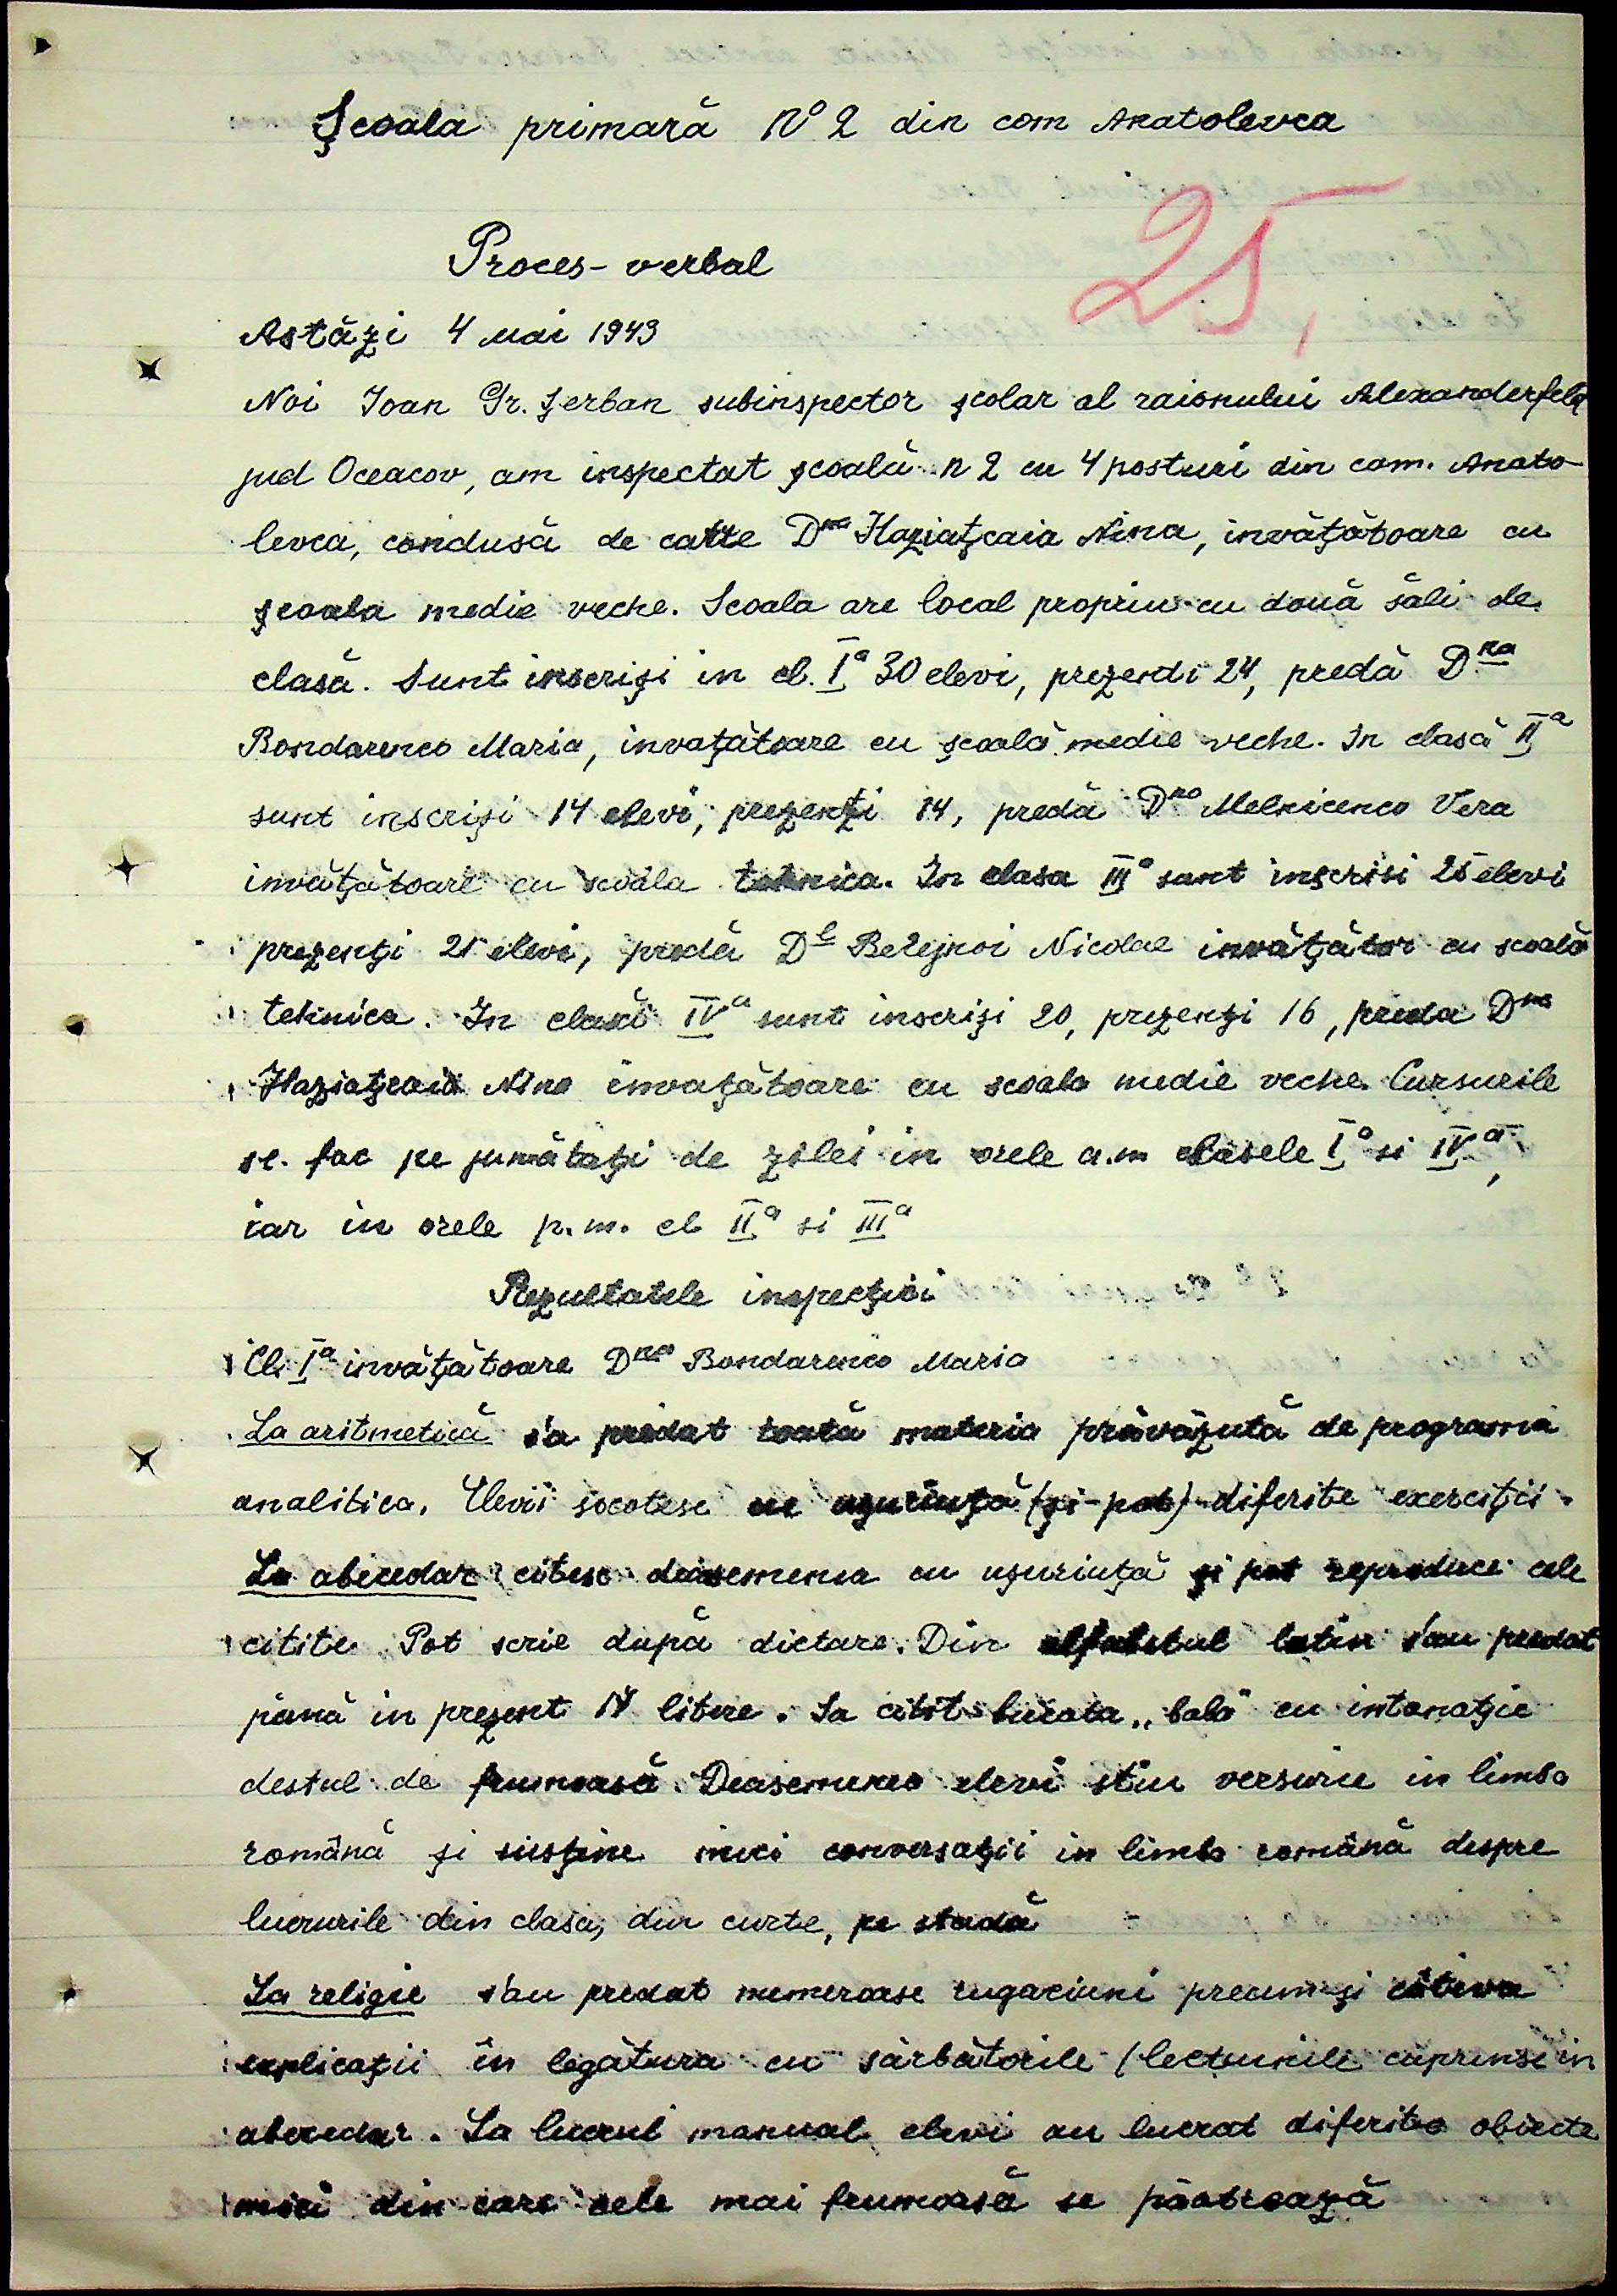 Școala primară Nº 2 din com Anatolevca
25,
Proces-verbal
Astăzi 4 Mai 1943
Noi Ioan Gr. Șerban subinspector școlar al raionului Alexanderfeld
jud Oceacov, am inspectat școală n 2 cu 4 posturi din com. Anato-
levca, condusă de catre Dna Haziațcaia Nina, invățătoare cu
școala medie veche. Scoala are local propriu cu două săli de
clasă. Sunt inscriși in cl. Iª 30 elevi, prezendi 24, predă Dna
Bondarenco Maria, invațătoare cu școală medie veche. In clasă IIª
sunt inscriși 14 elevi, prezenți 14, predă Dna Melnicenco Vera
invățătoare cu scoala tehnica. In clasa IIIª sunt inscrisi 25 elevi
prezenți 25 elevi, predă Dl Berejnoi Nicolae invățător cu scoală
tehnica. In clasă IVª sunt inscriși 20, prezenți 16, preda Dna
Haziațcaia Nina invațătoare cu scoala medie veche. Cursurile
se fac pe jumătați de zilei in orele a.m clasele Iª si IVª,
iar in orele p.m. cl IIª si IIIª
Rezultatele inspecției
Cl. Iª invățătoare Dna Bondarenco Maria
La aritmetică s'a predat toată materia prăvăzută de programa
analitica. Elevii socotesc cu ușurință (și-pot) diferite exerciții.
La abecedar citesc deasemenea cu ușurință și pot reproduce cele
citite. Pot scrie după dictare. Din alfabetul latin s'au predat
pănă in prezent 14 litere. Sa citit bucata „baba" cu intonație
destul de frumoasă. Deasemenea elevi stiu versurie in limba
română și susține mici conversații in limba română despre
lucrurile din clasa, din curte, pe stradă
La religie s'au predat numeroase rugaciuni precum și câteva
explicații în legătura cu sărbătorile (lecțiunile cuprinse in
abecedar. La lucrul manual elevi au lucrat diferite obiecte
mici din care cele mai frumoasă se păstrează